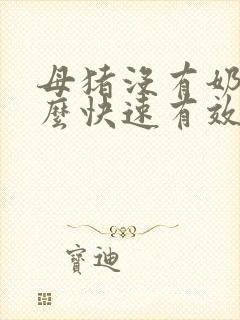 母猪没有奶
麼快速有效
寶迪